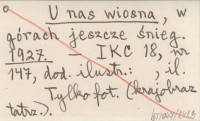 U nas wiosna, w
górach jeszcze śnieg.
1927. – IKC 18, nr
147, dod. ilustr.: , il.
Tylko fot. (krajobraz
tatrz.).